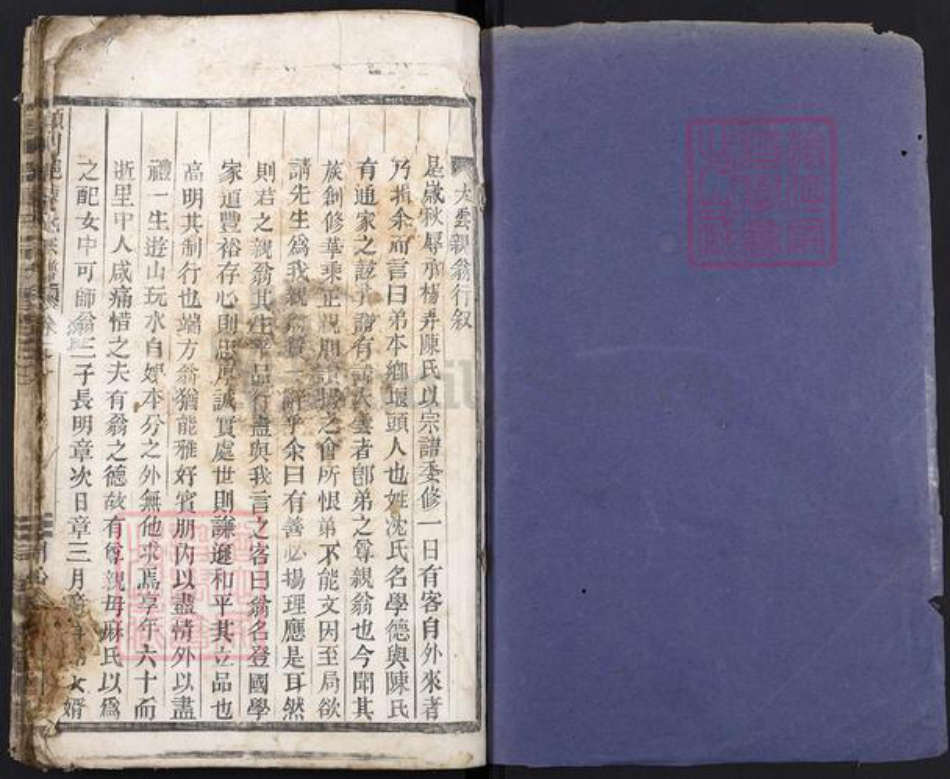 大雲親翁行叙
是歲秋辱承楊弄陳氏以宗譜委修一日有客自外來者
乃揖余而言曰弟本鄉堰頭人也姓沈氏名學德與陳氏
有通家之誼其譜有諱大雲者卽弟之尊親翁也今聞其
族創修華乘正親朋讚揚之會所恨弟不能文因至局欲
請先生爲我親翁贊一辭乎余曰有善必揚理應是耳然
則君之親翁其生平品行盡與我言之客曰翁名登國學
家道豐裕存心則忠厚誠實處世則謙遜和平其立品也
高明其制行也端方翁猶能雅好賓朋內以盡情外以盡
禮一生遊山玩水自娛本分之外無他求焉享年六十而
逝里中人咸痛惜之夫有翁之德故有尊親母麻氏以爲
之配女中可師翁三子長明章次日章三月 女婿